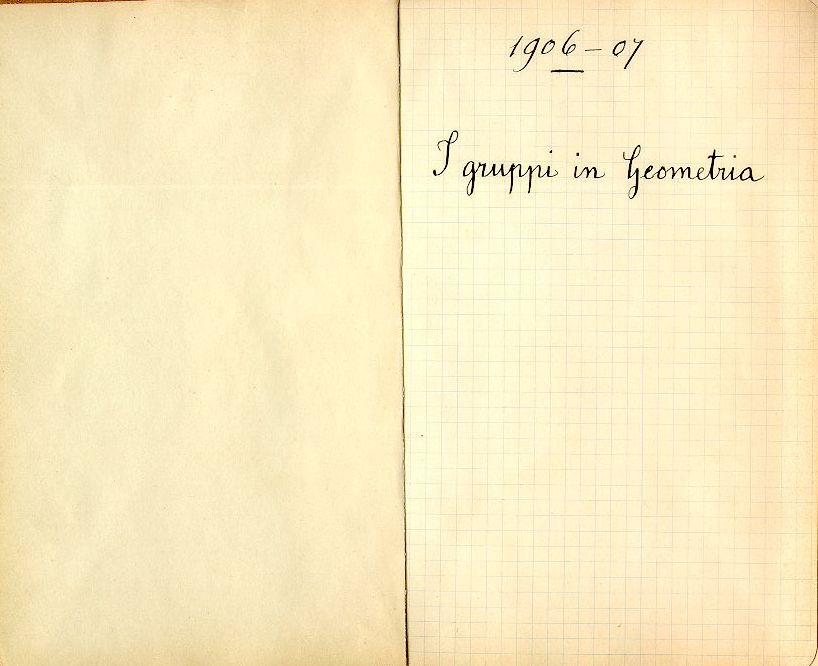 1906-07
I gruppi in Geometria